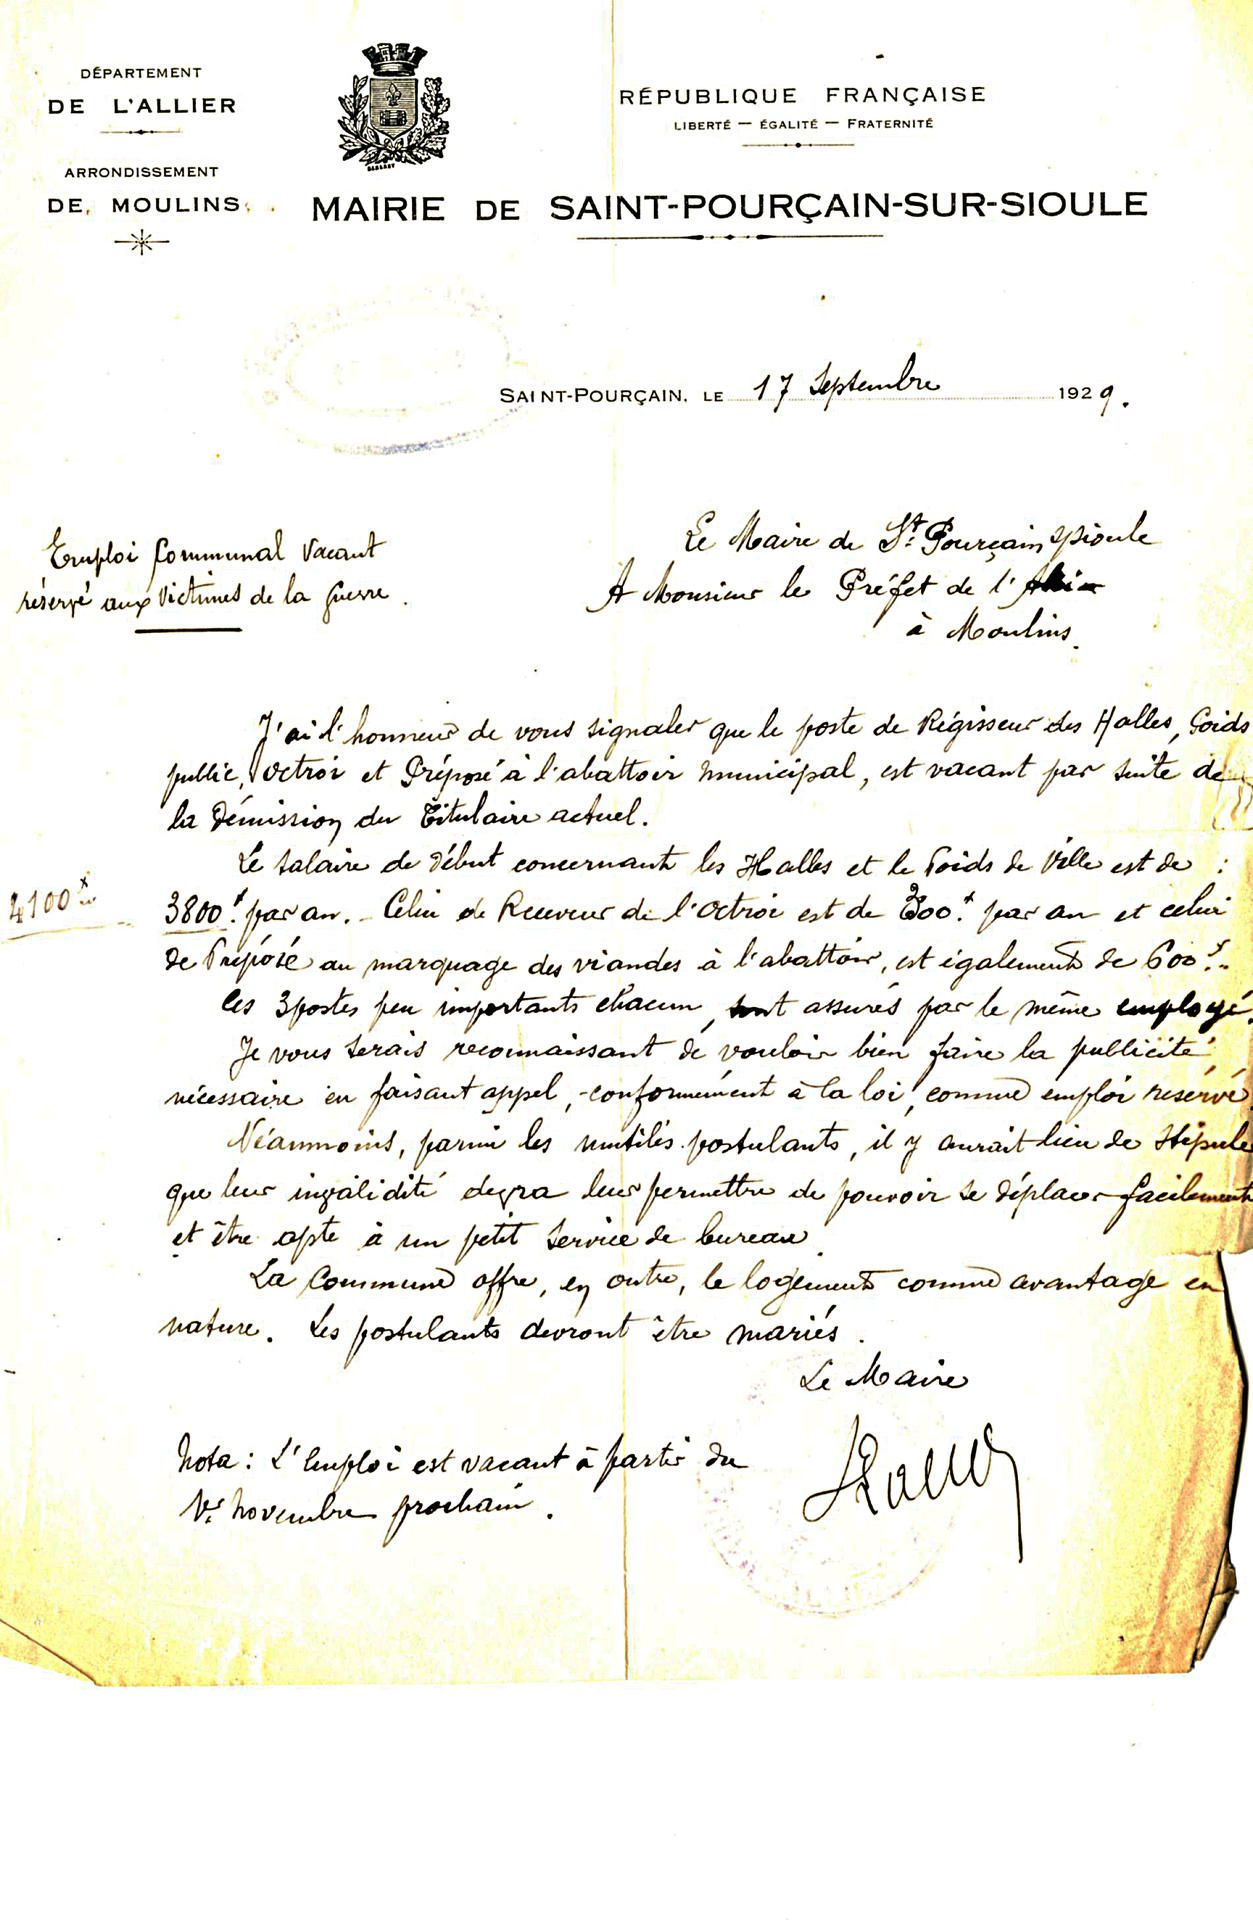 DÉPARTEMENT
DE L'ALLIER
ARRONDISSEMENT
DE MOULINS
RÉPUBLIQUE FRANÇAISE
LIBERTÉ — ÉGALITÉ — FRATERNITÉ
MAIRIE DE SAINT-POURÇAIN-SUR-SIOULE
SAINT-POURÇAIN, LE 17 Septembre 1929.
Emploi Communal Vacant
réservé aux Victimes de la Guerre.
Le Maire de St. Pourçain s/Sioule
A Monsieur le Préfet de l'Allier
à Moulins.
J'ai l'honneur de vous signaler que le poste de Régisseur des Halles, Poids
public, Octroi et Préposé à l'abattoir municipal, est vacant par suite de
la Démission du Titulaire actuel.
Le salaire de début concernant les Halles et le Poids de Ville est de :
4100 f
3800 f. par an. - Celui de Receveur de l'Octroi est de 300 f. par an et celui
de Préposé au marquage des viandes à l'abattoir, est également de 600 f.
Ces 3 postes peu importants chacun, sont assurés par le même employé.
Je vous serais reconnaissant de vouloir bien faire la publicité
nécessaire en faisant appel, conformément à la loi, comme emploi réservé.
Néanmoins, parmi les mutilés postulants, il y aurait lieu de Stipuler
que leur invalidité devra leur permettre de pouvoir se déplacer facilement
et être apte à un petit service de bureau.
La Commune offre, en outre, le logement comme avantage en
nature. Les postulants devront être mariés.
Le Maire
Nota : L'Emploi est vacant à partir du
1er Novembre prochain.